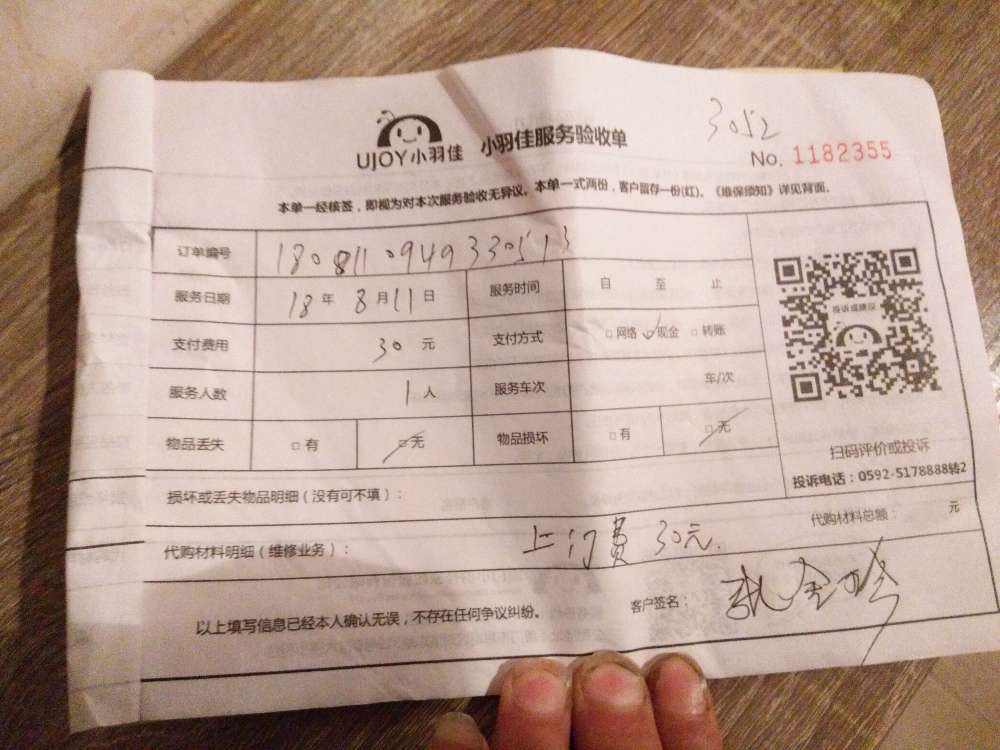 3052
UJOY小羽佳 小羽佳服务验收单
No. 1182355
本单一经核签，即视为对本次服务验收无异议。本单一式两份，客户留存一份(红)。《维保须知》详见背面。
订单编号 1808110949330513
服务日期 18年 8月11日 服务时间 自 至 止
支付费用 30元 支付方式 □网络 □现金 □转账
服务人数 1人 服务车次 车/次
物品丢失 □有 □无 物品损坏 □有 □无
投诉或建议
扫码评价或投诉
投诉电话：0592-5178888转2
损坏或丢失物品明细（没有可不填）：
代购材料明细（维修业务）： 上门费 30元. 代购材料总额： 元
以上填写信息已经本人确认无误，不存在任何争议纠纷。 客户签名：